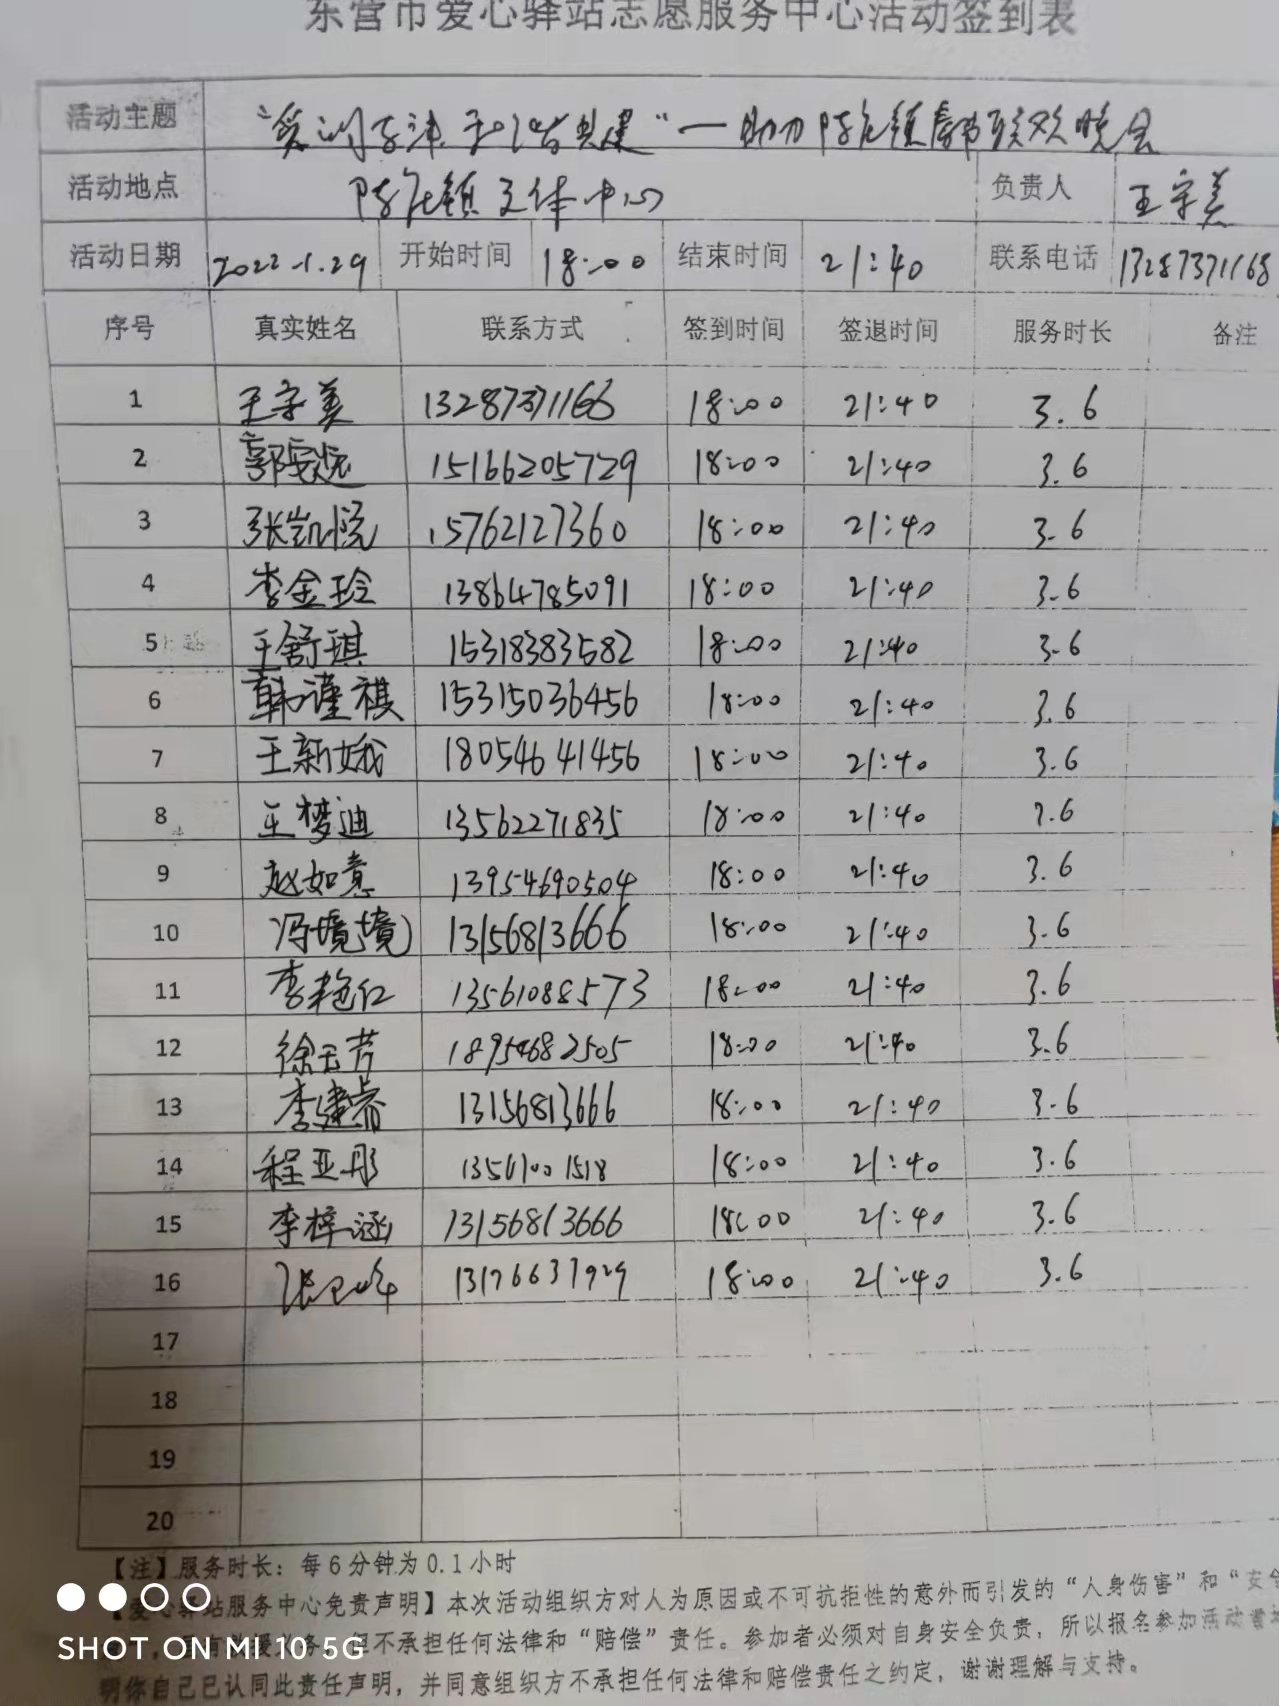 东营市爱心驿站志愿服务中心活动签到表
活动主题 共建"一助力陈庄镇春节联欢晚会
活动地点 陈庄镇文体中心 负责人 王守美
活动日期 2022.1.29 开始时间 18:00 结束时间 21:40 联系电话 13287371168
序号 真实姓名 联系方式 签到时间 签退时间 服务时长 备注
1 王守美 13287371166 18:00 21:40 3.6
2 郭 15166205729 18:00 21:40 3.6
3 张凯悦 15762127360 18:00 21:40 3.6
4 李金玲 13864785091 18:00 21:40 3.6
5 王舒琪 15318383582 18:00 21:40 3.6
6 韩谨祺 15315036456 18:00 21:40 3.6
7 王新娥 18054641456 18:00 21:40 3.6
8 王梦迪 13562271835 18:00 21:40 3.6
9 赵如意 13954690504 18:00 21:40 3.6
10 冯境境 13156813666 18:00 21:40 3.6
11 李艳红 13561088573 18:00 21:40 3.6
12 徐云芳 18954682505 18:00 21:40 3.6
13 李建睿 13156813666 18:00 21:40 3.6
14 程亚彤 13561001518 18:00 21:40 3.6
15 李梓涵 13156813666 18:00 21:40 3.6
16 张 13176637929 18:00 21:40 3.6
17
18
19
20
【注】服务时长：每6分钟为0.1小时
【爱心驿站服务中心免责声明】本次活动组织方对人为原因或不可抗拒性的意外而引发的“人身伤害”和“安全
但不承担任何法律和“赔偿”责任。参加者必须对自身安全负责，所以报名参加活动者
明你自己已认同此责任声明，并同意组织方不承担任何法律和赔偿责任之约定，谢谢理解与支持。
SHOT ON MI 10 5G